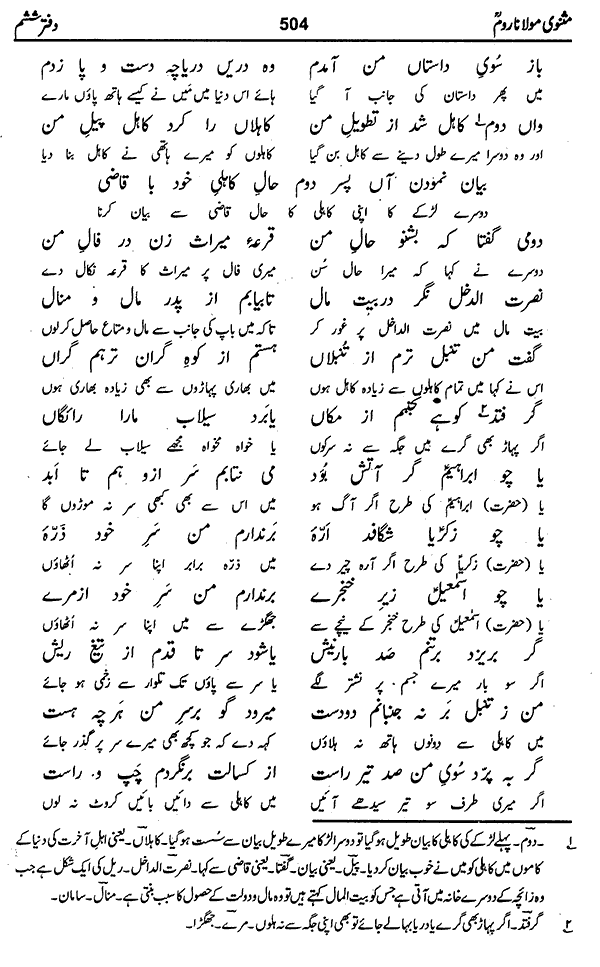 مثنوی مولانا روم 504 دفتر ششم
باز سُویِ داستاں من آمدم وہ دریں دریاچہ دست و پا زدم
میں پھر داستان کی جانب آ گیا ہائے اس دنیا میں مَیں نے کیسے ہاتھ پاؤں مارے
واں دومؔ کاہل شد از تطویلِ من کاہلاں را کرد کاہل پیلِ من
اور وہ دوسرا میرے طول دینے سے کاہل بن گیا کاہلوں کو میرے ہاتھی نے کاہل بنا دیا
بیان نمودن آں پسر دوم حالِ کاہلیِ خود با قاضی
دوسرے لڑکے کا اپنی کاہلی کا حال قاضی سے بیان کرنا
دومی گفتا کہ بشنو حالِ من قرعۂ میراث زن در فالِ من
دوسرے نے کہا کہ میرا حال سُن میری فال پر میراث کا قرعہ نکال دے
نصرت الدخل نگر در بیت مال تا بیابم از پدر مال و منال
بیت مال میں نصرت الداخل پر غور کر تاکہ میں باپ کی جانب سے مال و متاع حاصل کر لوں
گفت من تنبل ترم از تُنبلاں ہستم از کوہِ گران ترہم گراں
اس نے کہا میں تمام کاہلوں سے زیادہ کاہل ہوں میں بھاری پہاڑوں سے بھی زیادہ بھاری ہوں
گر فتد کوہے نجنبم از مکاں یا برد سیلاب مارا رائگاں
اگر پہاڑ بھی گرے میں جگہ سے نہ سرکوں یا خواہ مخواہ مجھے سیلاب لے جائے
یا چو ابراہیمؑ گر آتش بُود می نتابم سَر ازو ہم تا اَبد
یا (حضرت) ابراہیمؑ کی طرح اگر آگ ہو میں اس سے بھی کبھی سر نہ موڑوں گا
یا چو زکریاؑ شگافد ارّہ بَرندارم من سَرِ خود ذَرّہ
یا (حضرت) زکریاؑ کی طرح اگر آرہ چیر دے میں ذرّہ برابر اپنا سر نہ اُٹھاؤں
یا چو اسمٰعیلؑ زیرِ خنجرے برندارم من سَرِ خود ازمرے
یا (حضرت) اسمٰعیلؑ کی طرح خنجر کے نیچے سے جھگڑے سے میں اپنا سر نہ اُٹھاؤں
گر بریزد برتنم صد بارنیش یا شود سر تا قدم از تیغ ریش
اگر سو بار میرے جسم پر نشتر لگے یا سر سے پاؤں تک تلوار سے زخمی ہو جائے
من ز تنبل بَر نہ جنبانم دودست میرود گو برسرِ من ہرچہ ہست
میں کاہلی سے دونوں ہاتھ نہ ہلاؤں کہہ دے کہ جو کچھ بھی میرے سر پر گذر جائے
گر بہ پرّد سُویِ من صد تیر راست از کسالت برنگردم چَپ و راست
اگر میری طرف سو تیر سیدھے آئیں میں کاہلی سے دائیں بائیں کروٹ نہ لوں
۱ دوم۔ پہلے لڑکے کی کاہلی کا بیان طویل ہو گیا تو دوسرا لڑکا میرے طویل بیان سے سُست ہو گیا۔ کاہلاں۔ یعنی اہلِ آخرت کی دنیا کے
کاموں میں کاہلی کو میں نے خوب بیان کر دیا۔ پیل۔ یعنی بیان۔ گفتا۔ یعنی قاضی سے کہا۔ نصرت الداخل۔ رمل کی ایک شکل ہے جب
وہ زائچہ کے دوسرے خانہ میں آتی ہے جس کو بیت المال کہتے ہیں تو وہ مال و دولت کے حصول کا سبب بنتی ہے۔ منال۔ سامان۔
۲ گر فتد۔ اگر پہاڑ بھی گرے یا دریا بہا لے جائے تو بھی اپنی جگہ سے نہ ہلوں۔ مرے۔ جھگڑا۔